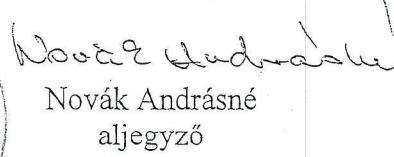 Novák Andrásné
Novák Andrásné
aljegyző